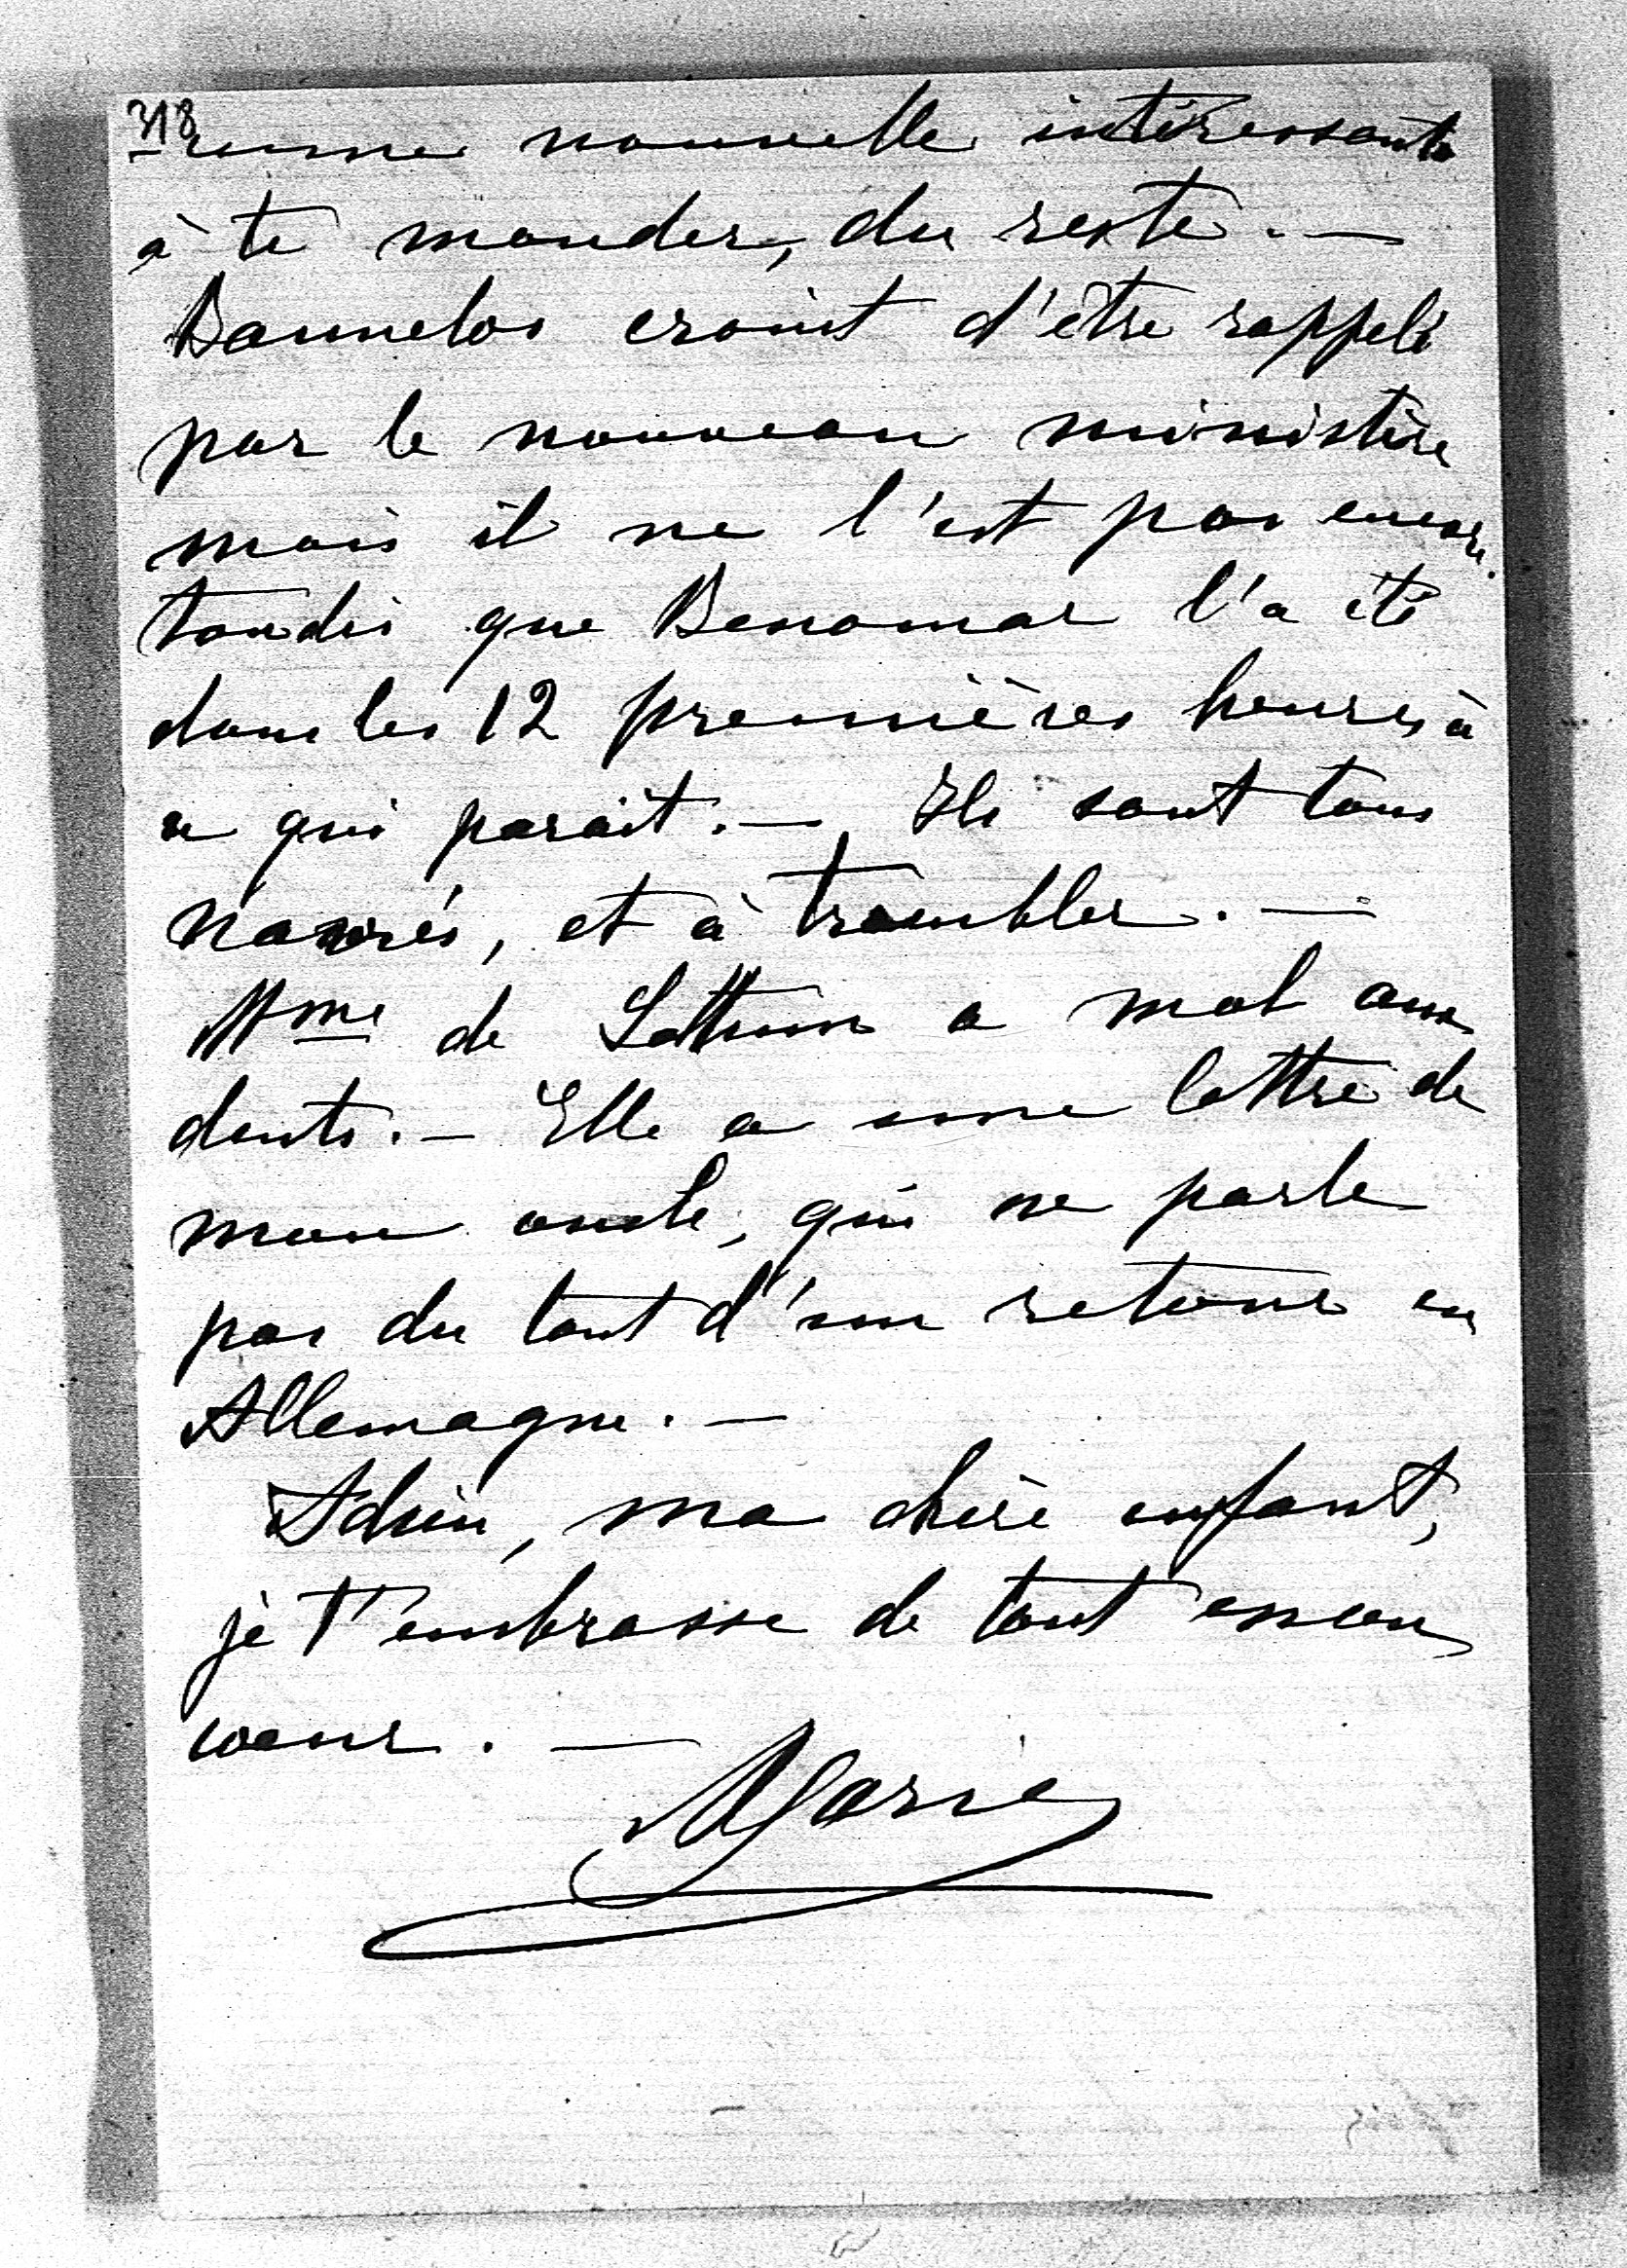 318
une nouvelle intéressante
à te mander, du reste. —
Bannelos craint d'être rappelé
par le nouveau ministère
mais il ne l'est pas encore.
tandis que Benomar l'a été
dans les 12 premières heures à
ce qui parait. — Ils sont tous
navrés, et à trembler. —
Mme de Lottum a mal aux
dents. — Elle a une lettre de
mon oncle, qui ne parle
pas du tout d'un retour en
Allemagne. —
Adieu, ma chère enfant,
je t'embrasse de tout mon
coeur. —
Marie